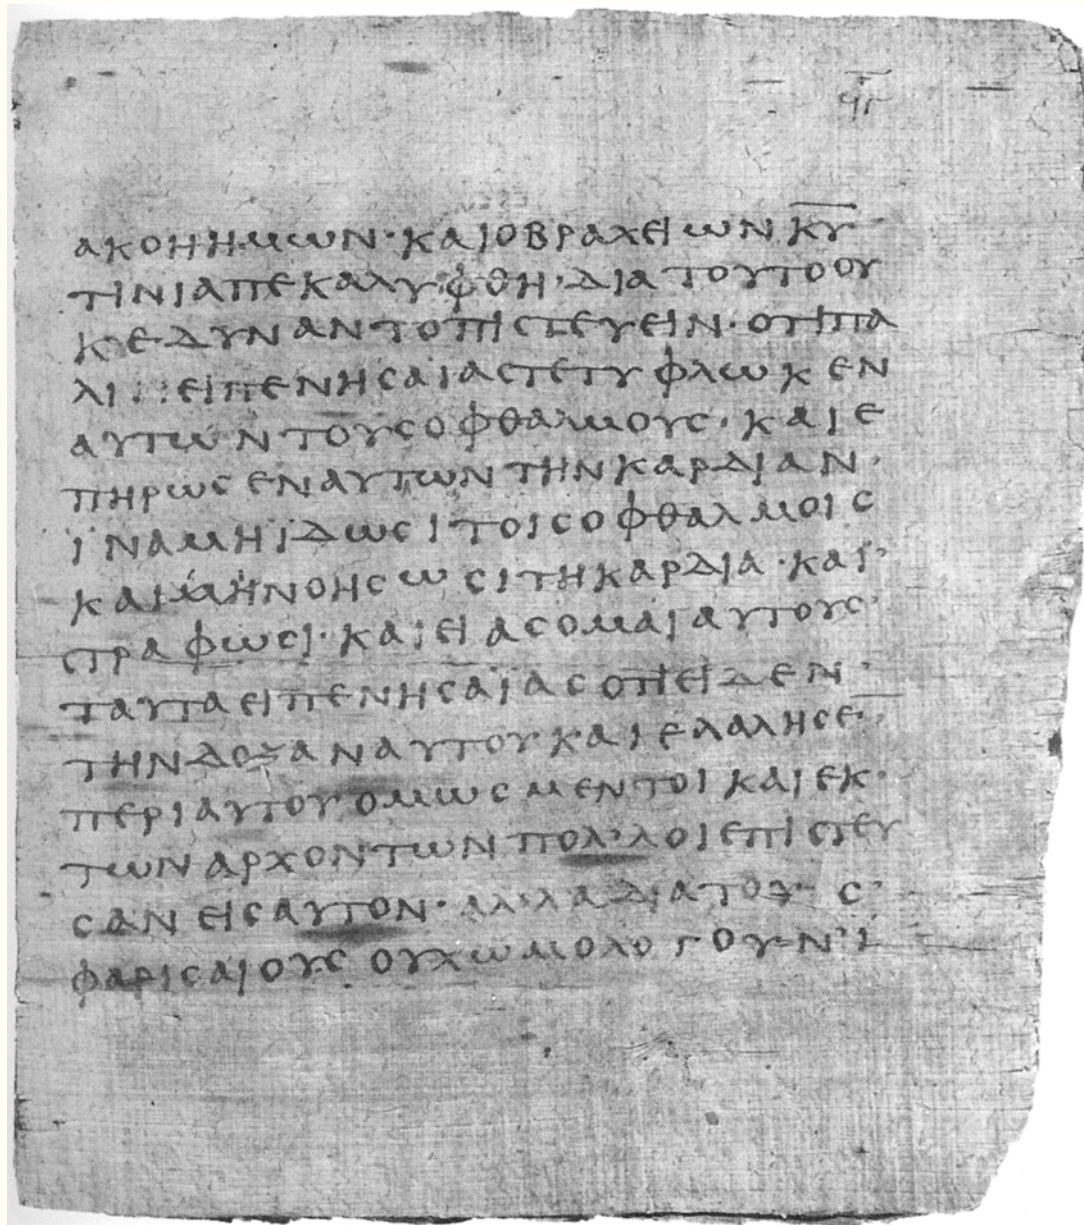 ϟΓ
ΑΚΟΗΗΜΩΝ·ΚΑΙΟΒΡΑΧΕΙΩΝΚ̅Υ̅
ΤΙΝΙΑΠΕΚΑΛΥΦΘΗ·ΔΙΑΤΟΥΤΟΟΥ
ΚΕΔΥΝΑΝΤΟΠΙϹΤΕΥΕΙΝ·ΟΤΙΠΑ
ΛΙΕΙΠΕΝΗϹΑΙΑϹΤΕΤΥΦΛΩΚΕΝ
ΑΥΤΩΝΤΟΥϹΟΦΘΑΛΜΟΥϹ·ΚΑΙΕ
ΠΗΡΩϹΕΝΑΥΤΩΝΤΗΝΚΑΡΔΙΑΝ·
ΪΝΑΜΗΪΔΩϹΙΤΟΙϹΟΦΘΑΛΜΟΙϹ
ΚΑΙΜΗΝΟΗϹΩϹΙΤΗΚΑΡΔΙΑ·ΚΑΙ·
ϹΤΡΑΦΩϹΙ·ΚΑΙΕΙΑϹΟΜΑΙΑΥΤΟΥϹ·
ΤΑΥΤΑΕΙΠΕΝΗϹΑΪΑϹΟΤΙΕΙΔΕΝ·
ΤΗΝΔΟΞΑΝΑΥΤΟΥΚΑΙΕΛΑΛΗϹΕ̅
ΠΕΡΙΑΥΤΟΥΟΜΩϹΜΕΝΤΟΙΚΑΙΕΚ·
ΤΩΝΑΡΧΟΝΤΩΝΠΟΛ’ΛΟΙΕΠΙϹΤΕΥ
ϹΑΝΕΙϹΑΥΤΟΝ·ΑΛ’ΛΑΔΙΑΤΟΥϹ·
ΦΑΡΙϹΑΙΟΥϹΟΥΧΩΜΟΛΟΓΟΥΝΪ